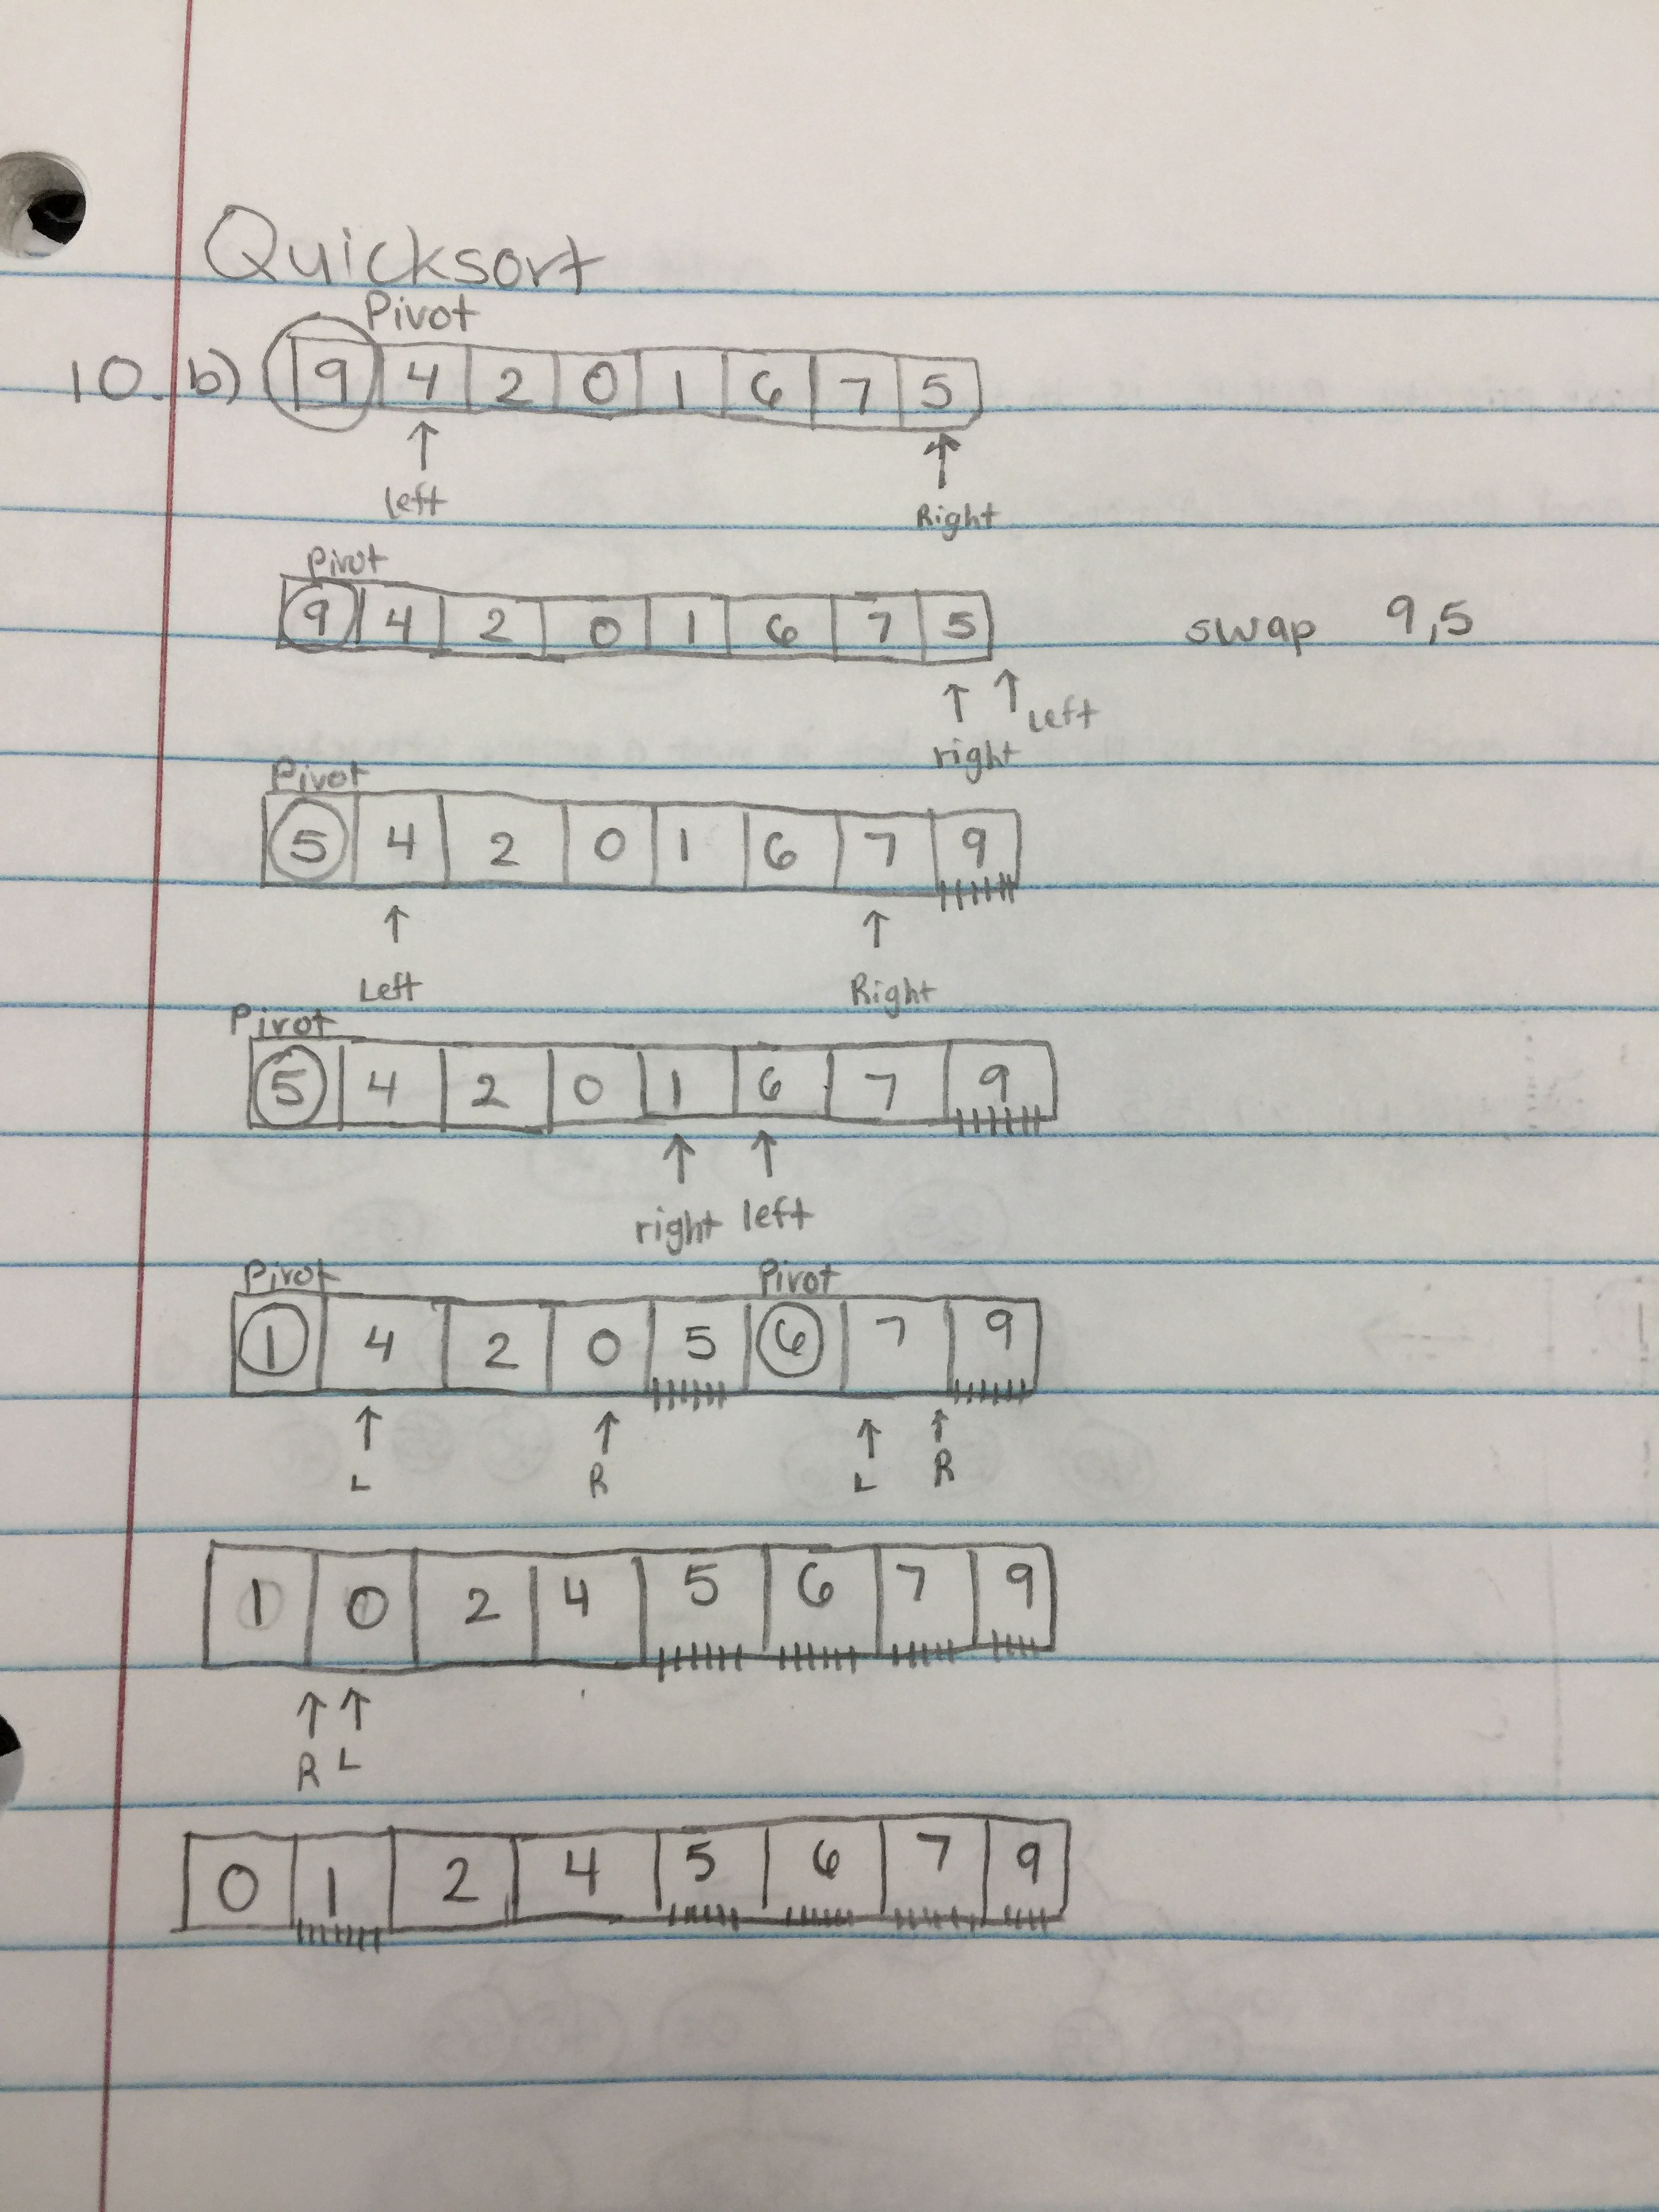 Quicksort
Pivot
10. b) 9 4 2 0 1 6 7 5
left Right
Pivot
9 4 2 0 1 6 7 5 swap 9,5
left
right
Pivot
5 4 2 0 1 6 7 9
Left Right
Pivot
5 4 2 0 1 6 7 9
right left
Pivot Pivot
1 4 2 0 5 6 7 9
L R L R
1 0 2 4 5 6 7 9
R L
0 1 2 4 5 6 7 9